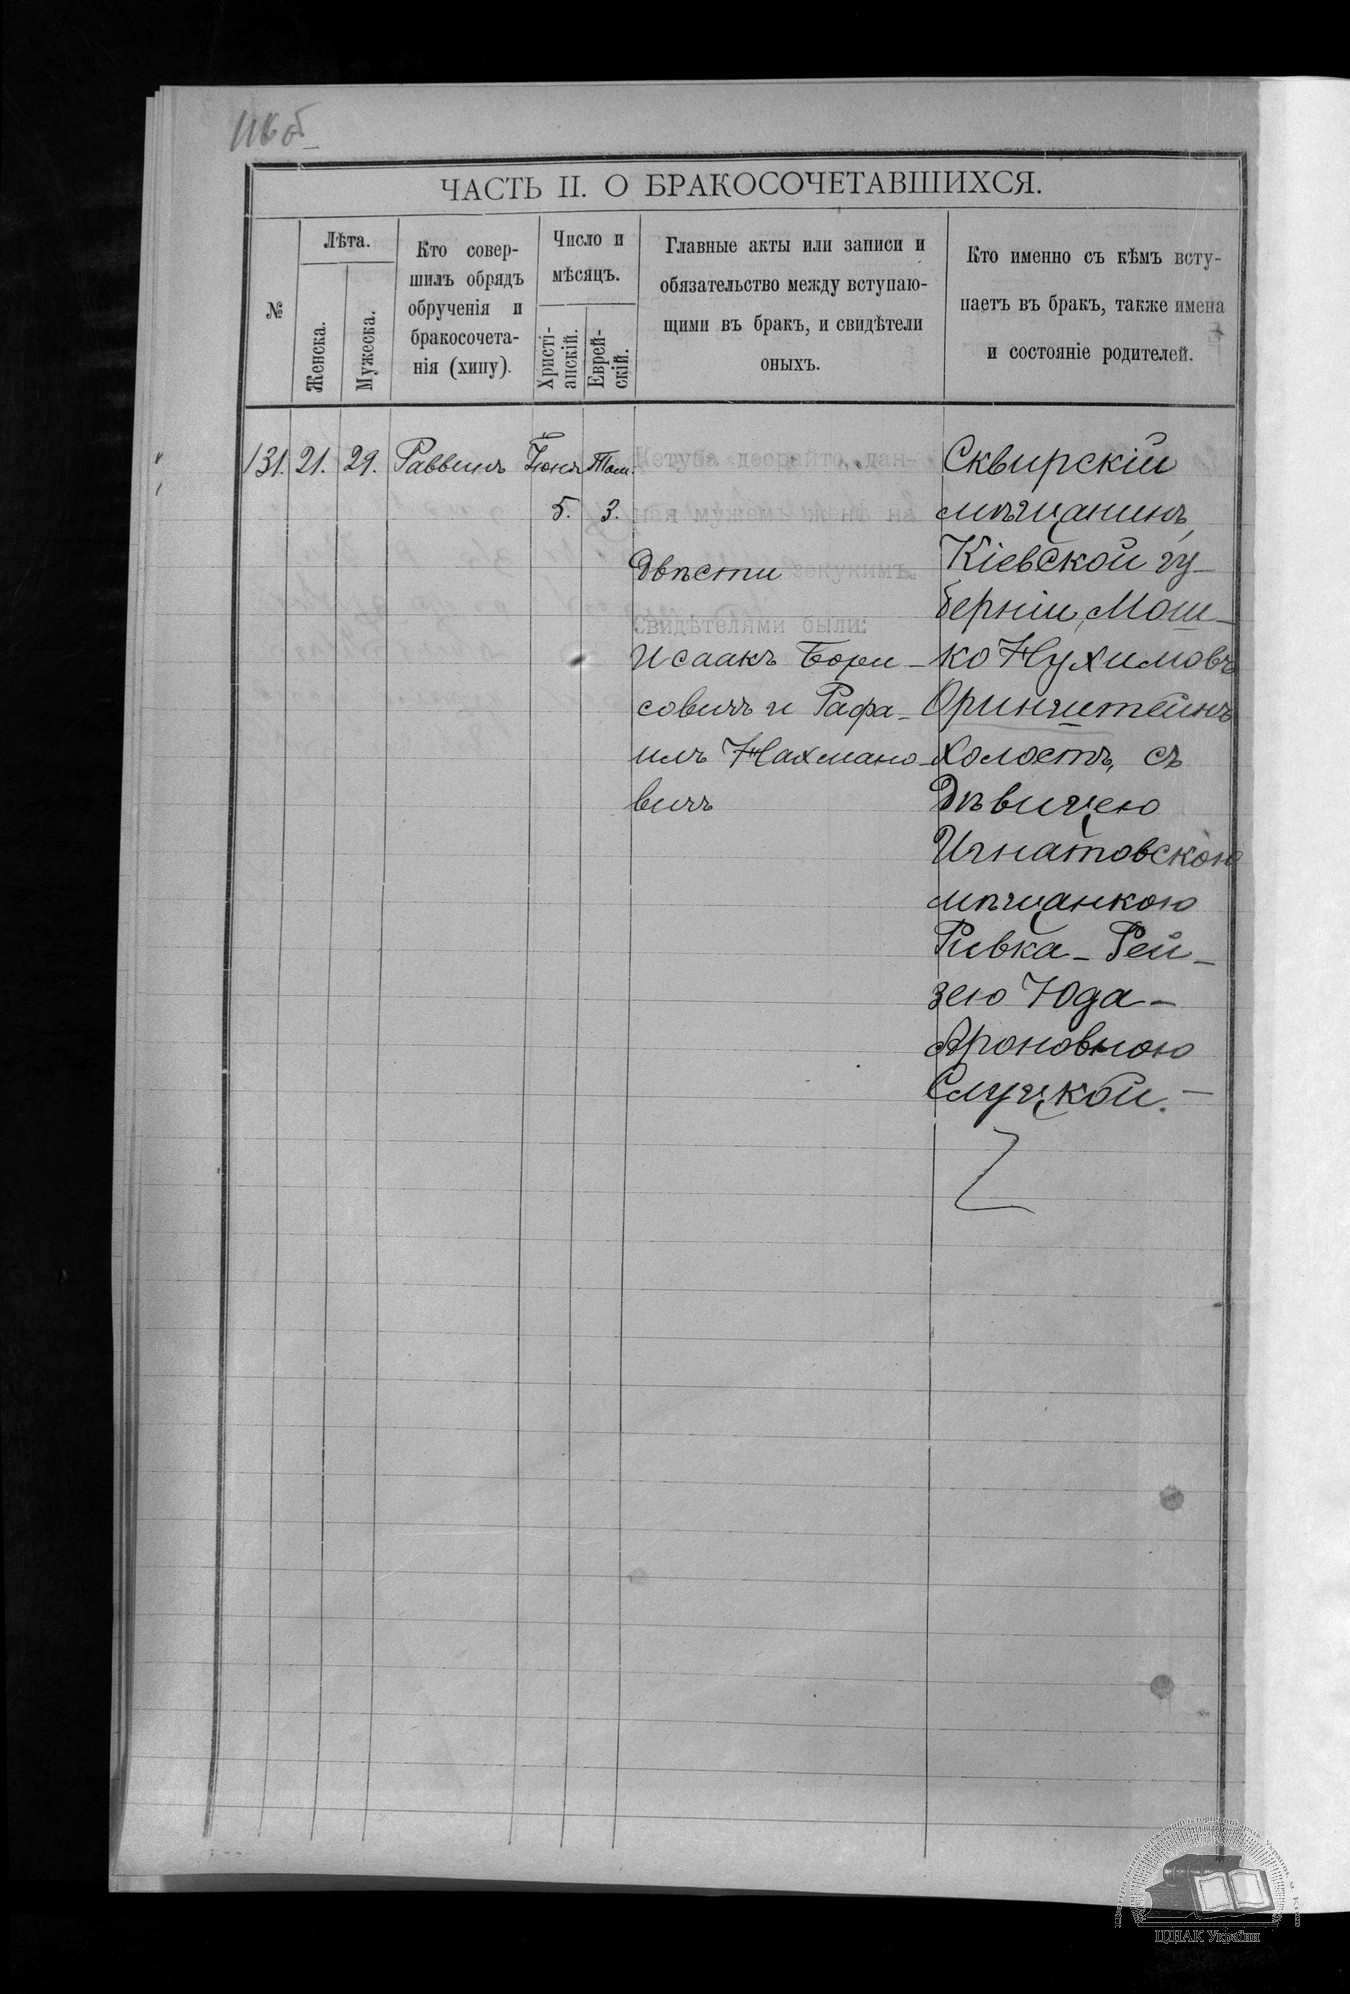 116 об
ЧАСТЬ II. О БРАКОСОЧЕТАВШИХСЯ.
№
Лѣта.
Женска.
Мужеска.
Кто совер-
шилъ обрядъ
обрученія и
бракосочета-
нія (хипу).
Число и
мѣсяцъ.
Христі-
анскій.
Еврей-
скій.
Главные акты или записи и
обязательство между вступаю-
щими въ бракъ, и свидѣтели
оныхъ.
Кто именно съ кѣмъ всту-
паетъ въ брак, также имена
и состояніе родителей.
131. 21. 29. Раввинъ Іюня Там.
5. 3.
Кетуба деорайто, дан-
ная мужемъ женѣ на
Двѣсти зекукимъ.
Свидѣтелями были:
Исаакъ Бори-
совичъ и Рафа-
илъ Нахмано-
вичъ
Сквирскій
мѣщанинъ,
Кіевской гу-
берніи, Мош-
ко Нухимовъ
Оринштейнъ
холостъ, съ
Дѣвицею
Игнатовскою
мѣщанкою
Ривка-Рей-
зею Юда-
Ароновною
Слуцкой.-
ЦДІАК України